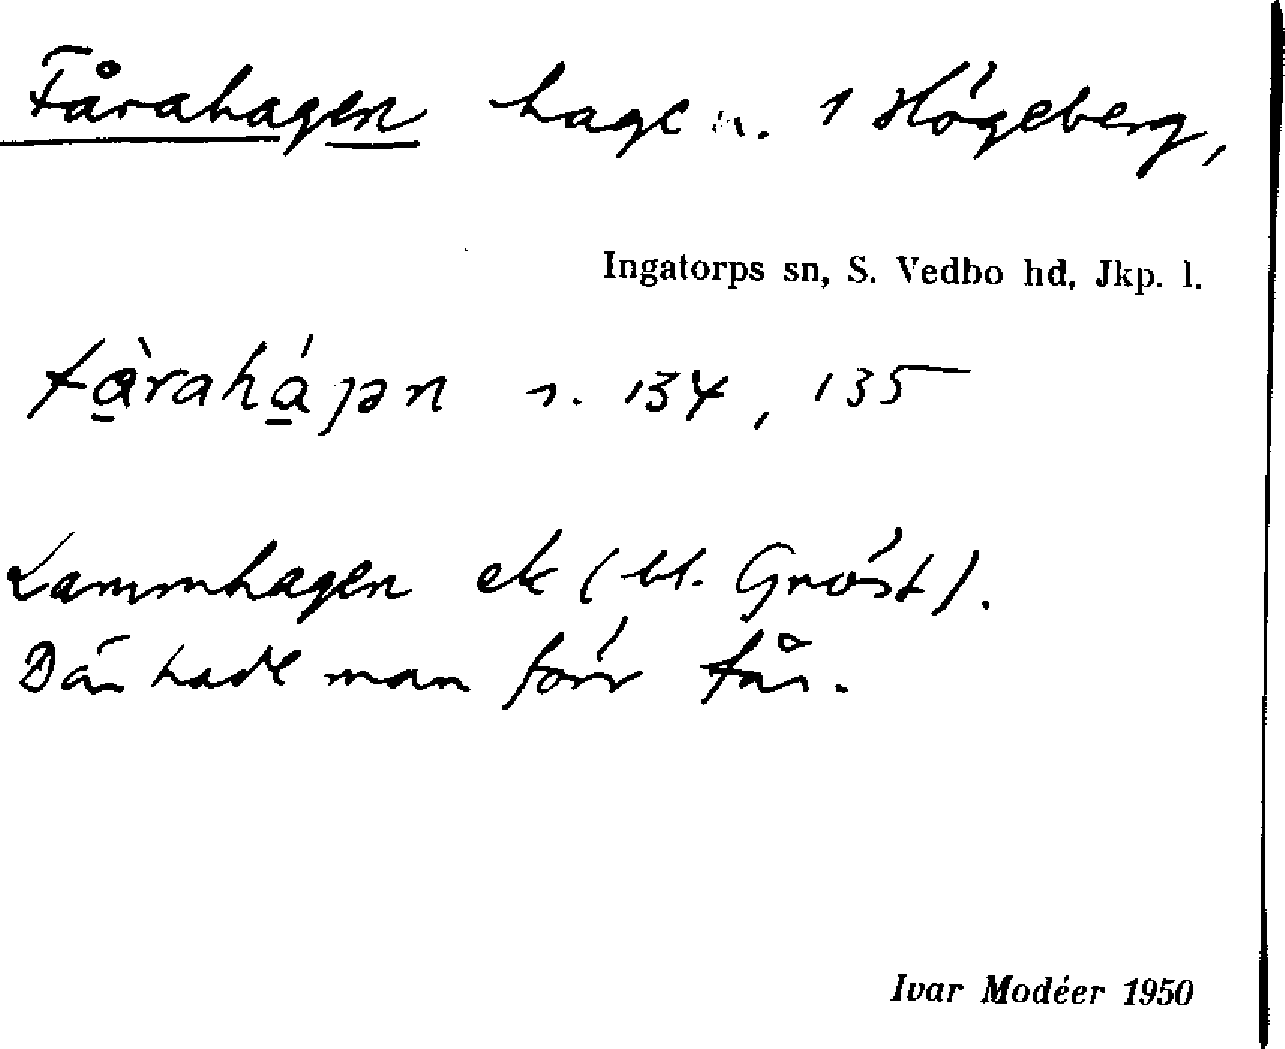 Fårahagen hage n. 1 Högeberg,
Ingatorps sn, S. Vedbo hd, Jkp. l.
fàraháɟən n. 134, 135
Lammhagen ek (bl.
Där hade man förr får.
Ivar Modéer 1950